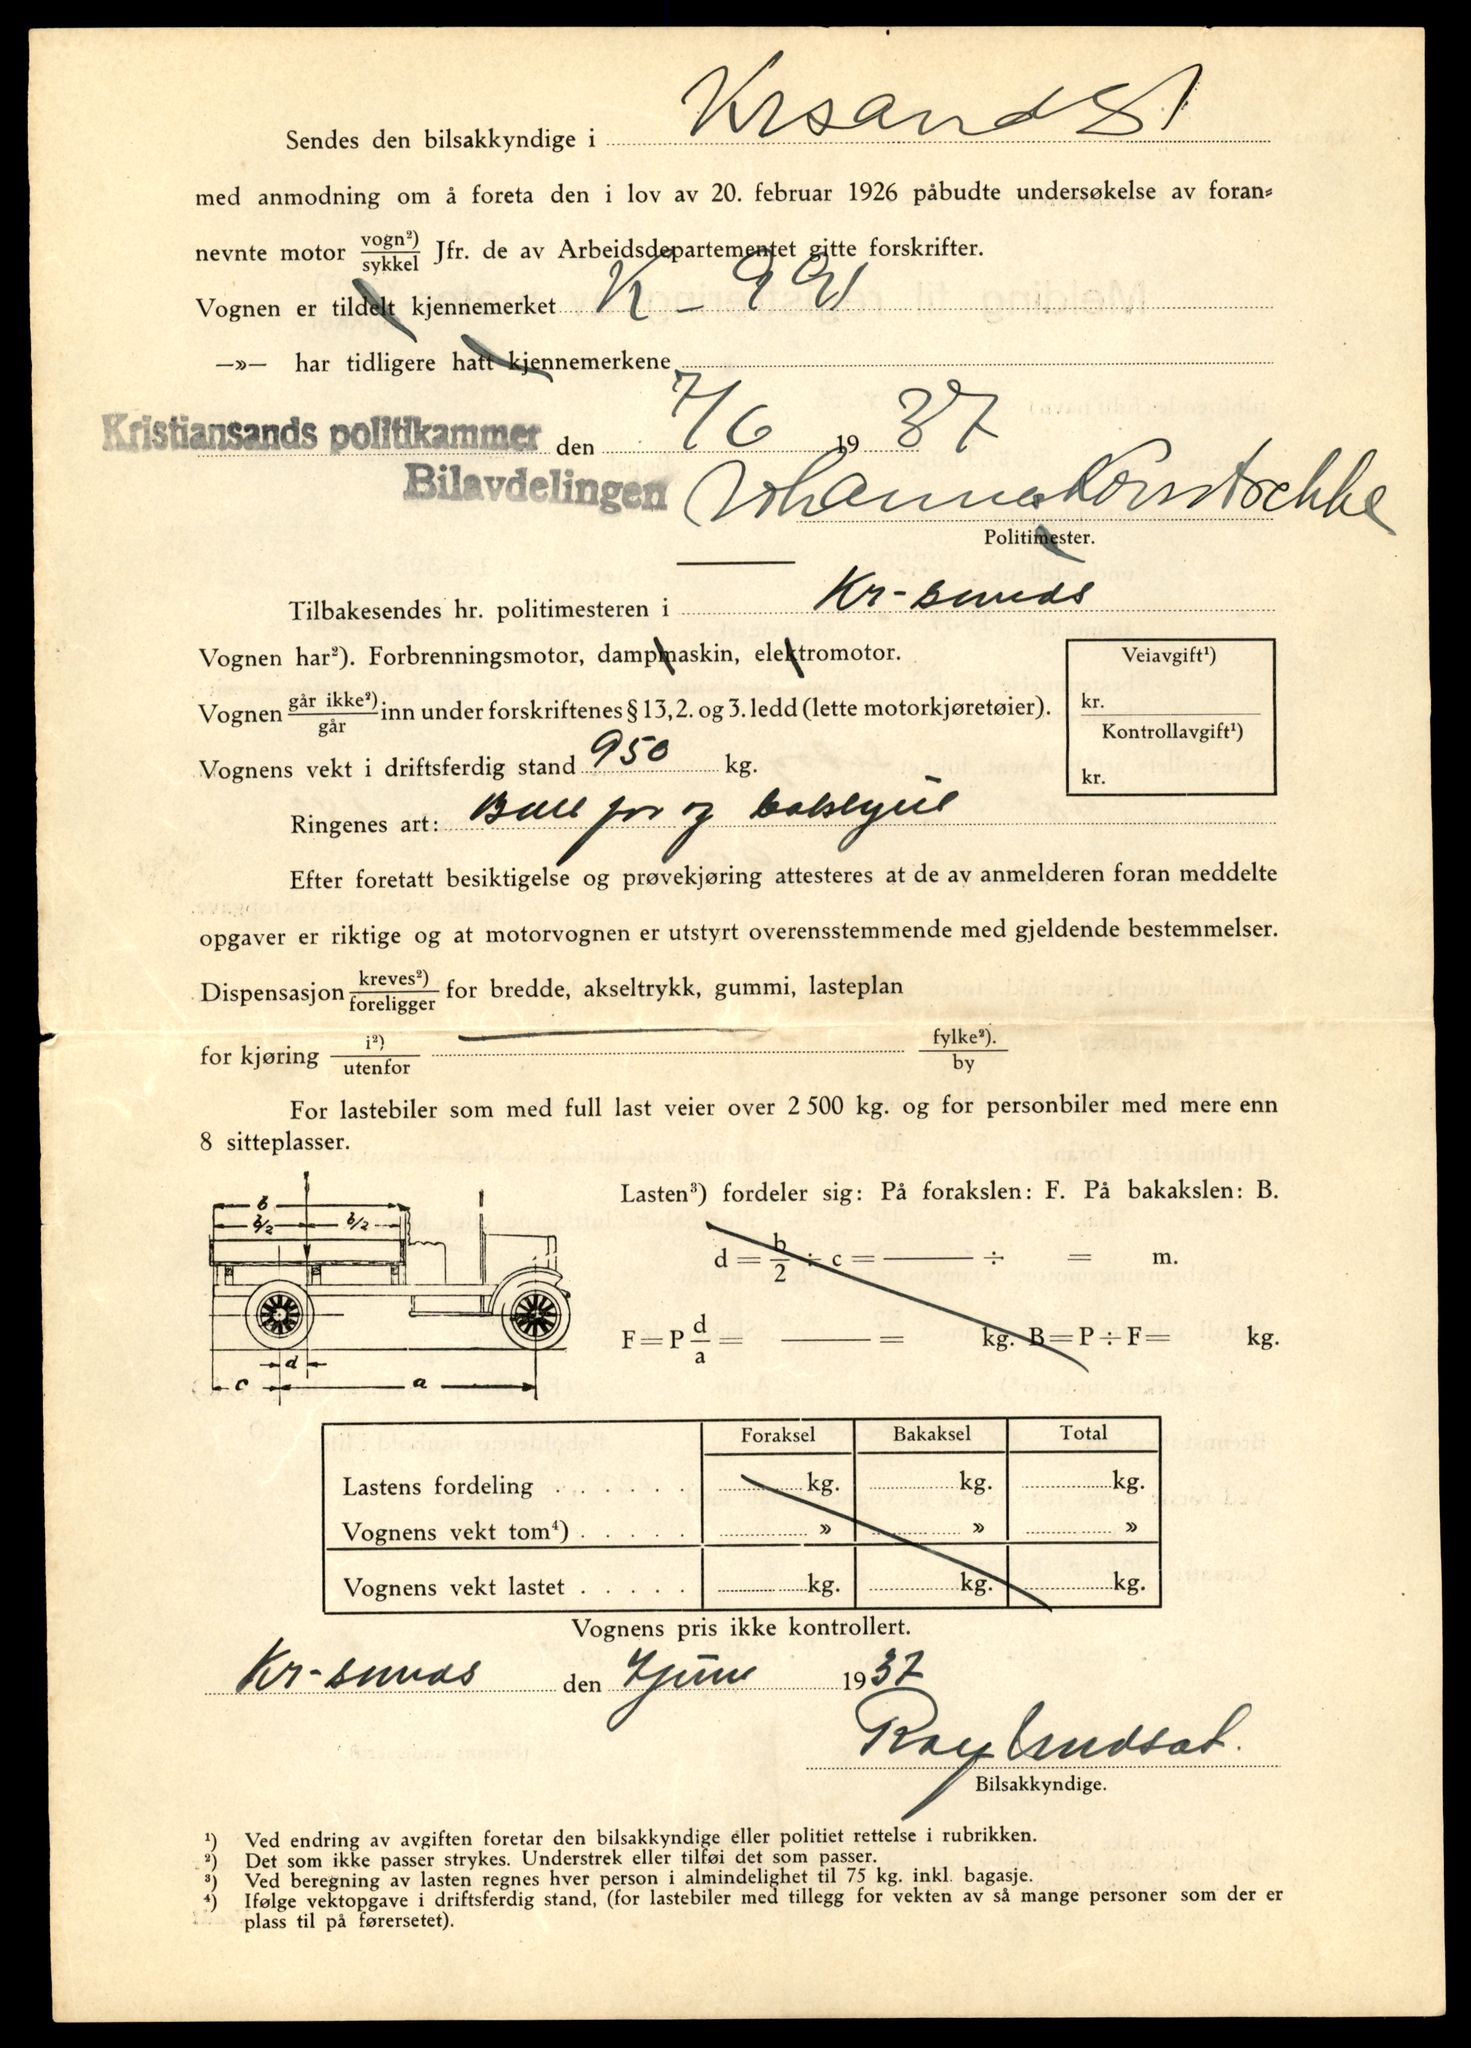 Sendes den bilsakkyndige i Krsand S
med anmodning om å foreta den i lov av 20. februar 1926 påbudte undersøkelse av foran-
nevnte motor vogn²)/sykkel Jfr. de av Arbeidsdepartementet gitte forskrifter.
Vognen er tildelt kjennemerket K - 991
—»— har tidligere hatt kjennemerkene
Kristiansands politikammer den 7/6 1937
Bilavdelingen
Politimester.
Tilbakesendes hr. politimesteren i Kr-sands
Vognen har²). Forbrenningsmotor, dampmaskin, elektromotor.
Veiavgift¹)
kr.
Kontrollavgift¹)
kr.
Vognen går ikke²)/går inn under forskriftenes § 13, 2. og 3. ledd (lette motorkjøretøier).
Vognens vekt i driftsferdig stand 950 kg.
Ringenes art: Ball for og bakhjul
Efter foretatt besiktigelse og prøvekjøring attesteres at de av anmelderen foran meddelte
opgaver er riktige og at motorvognen er utstyrt overensstemmende med gjeldende bestemmelser.
Dispensasjon kreves²)/foreligger for bredde, akseltrykk, gummi, lasteplan
for kjøring i²)/utenfor fylke²)./by
For lastebiler som med full last veier over 2 500 kg. og for personbiler med mere enn
8 sitteplasser.
Lasten³) fordeler sig: På forakslen: F. På bakakslen: B.
b
b/2 b/2
d = b/2 ÷ c = —— ÷ = m.
F = P d/a = —— = kg. B = P ÷ F = kg.
d
c a
Foraksel Bakaksel Total
Lastens fordeling . . . . . . kg. kg. kg.
Vognens vekt tom⁴) . . . . . » » »
Vognens vekt lastet . . . . . kg. kg. kg.
Vognens pris ikke kontrollert.
Kr-sands den 7 juni 1937
Bilsakkyndige.
¹) Ved endring av avgiften foretar den bilsakkyndige eller politiet rettelse i rubrikken.
²) Det som ikke passer strykes. Understrek eller tilføi det som passer.
³) Ved beregning av lasten regnes hver person i almindelighet til 75 kg. inkl. bagasje.
⁴) Ifølge vektopgave i driftsferdig stand, (for lastebiler med tillegg for vekten av så mange personer som der er
plass til på førersetet).